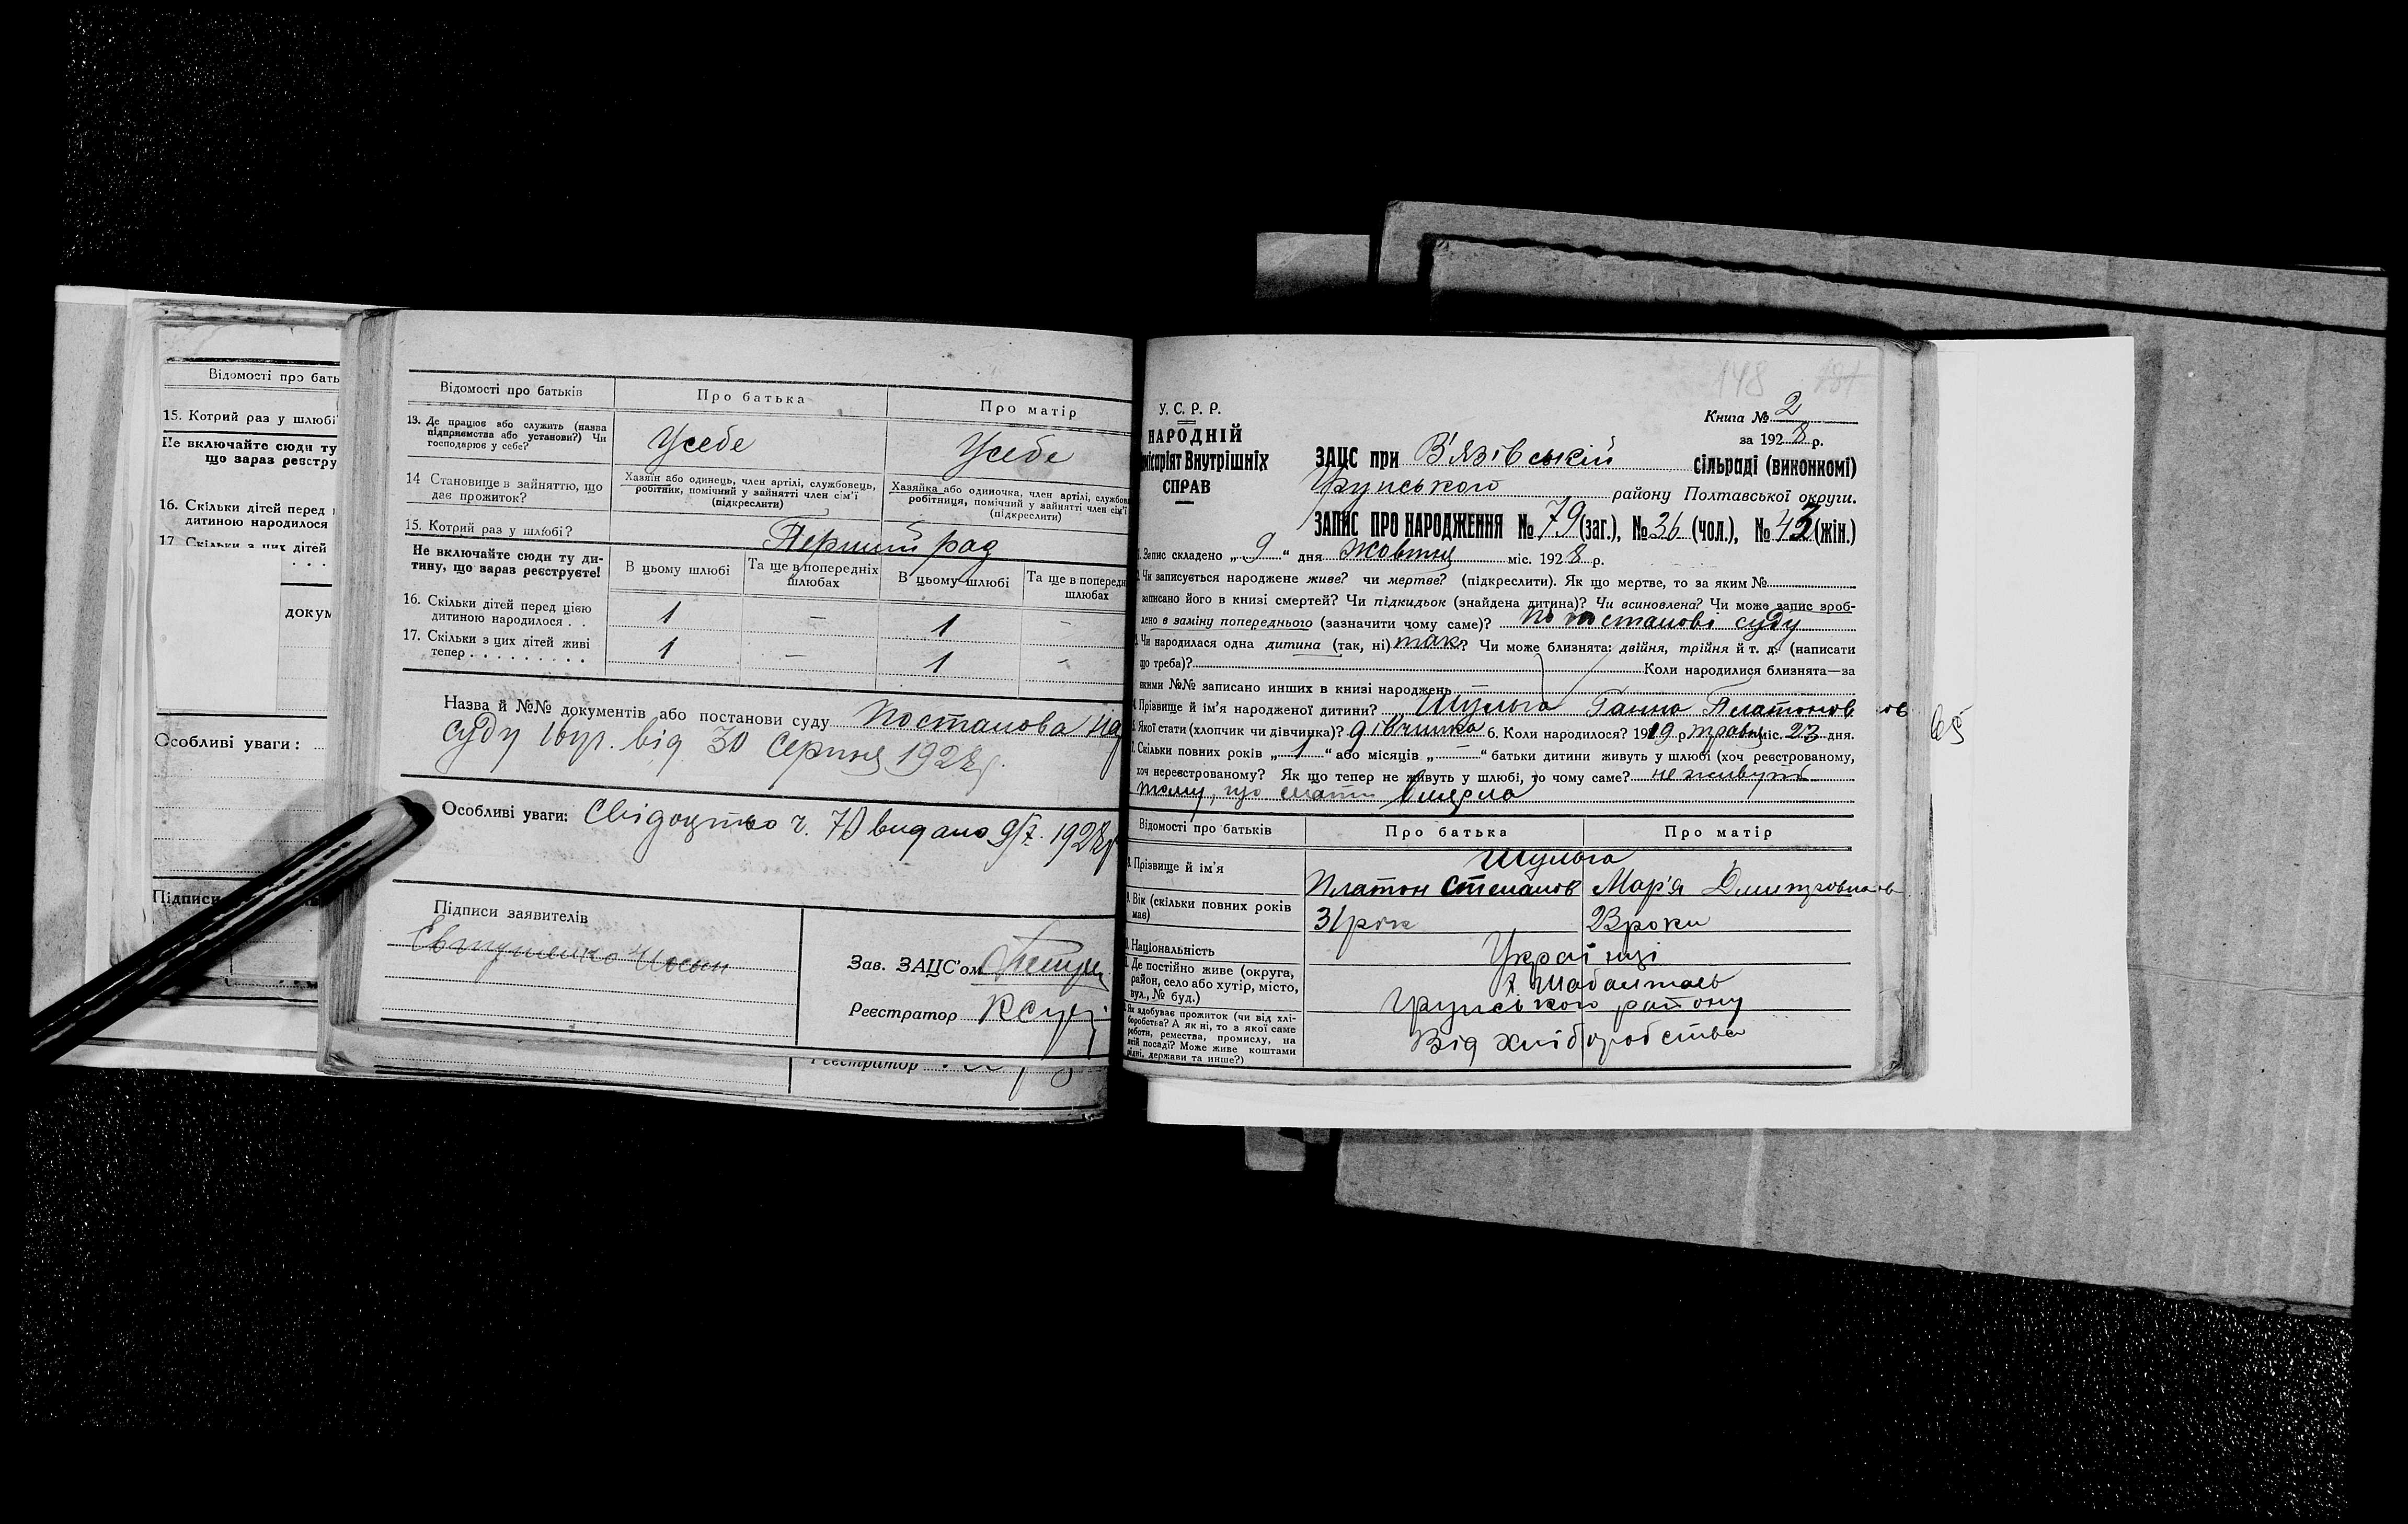 Відомості про бать
15. Котрий раз у шлюбі
Не включайте сюди ту
що зараз реєстру
16. Скільки дітей перед
дитиною народилося
17. Скільки з цих дітей
докум
Особливі уваги:
Підписи
Відомості про батьків
Про батька
Про матір
13. Де працює або служить (назва
підприємства або установи?) Чи
господарює у себе?
Усебе
Усебе
14 Становище в зайняттю, що
дає прожиток?
Хазяїн або одинець, член артілі, службовець,
робітник, помічний у зайнятті член сім'ї
(підкреслити)
Хазяйка або одиночка, член артілі, службов
робітниця, помічний у зайнятті член сім'ї
(підкреслити)
15. Котрий раз у шлюбі?
Перший раз
Не включайте сюди ту ди-
тину, що зараз реєструєте!
В цьому шлюбі
Та ще в попередніх
шлюбах
В цьому шлюбі
Та ще в попередн
шлюбах
16. Скільки дітей перед цією
дитиною народилося . .
1 — 1 —
17. Скільки з цих дітей живі
тепер . . . . . . . . .
1 — 1 —
Назва й №№ документів або постанови суду Постанова Нар
суду 1 вир. від 30 серпня 1928р.
Особливі уваги: Свідоцтво ч. 79 видано 9/X 1928р
Підписи заявителів
Євтушенко Йосип
Зав. ЗАЦС'ом
Реєстратор
Реєстратор
148
У. С. Р. Р.
НАРОДНІЙ
місаріят Внутрішніх
СПРАВ
Книга № 2
за 1928 р.
ЗАЦС при В'язівській сільраді (виконкомі)
Грунського району Полтавської округи.
ЗАПИС ПРО НАРОДЖЕННЯ № 79 (заг.), № 36 (чол.), № 43 (жін.)
1. Запис складено „ 9 “ дня Жовтня міс. 1928 р.
Чи записується народжене живе? чи мертве? (підкреслити). Як що мертве, то за яким №
записано його в книзі смертей? Чи підкидьок (знайдена дитина)? Чи всиновлена? Чи може запис зроб-
лено в заміну попереднього (зазначити чому саме)? по постанові суду
Чи народилася одна дитина (так, ні) так? Чи може близнята: двійня, трійня й т. д. (написати
що треба)? Коли народилися близнята—за
якими №№ записано инших в книзі народжень
Прізвище й ім'я народженої дитини? Шульга Ганна Платонов ов
Якої стати (хлопчик чи дівчинка)? дівчинка 6. Коли народилося? 1919 р. травня міс. 23 дня.
7. Скільки повних років „ 1 “ або місяців „ — “ батьки дитини живуть у шлюбі (хоч реєстрованому,
хоч нереєстрованому? Як що тепер не живуть у шлюбі, то чому саме? не живуть
тому, що мати вмерла
Відомості про батьків
Про батька
Про матір
Прізвище й ім'я
Шульга
Платон Степанов
Мар'я Дмитровна
9. Вік (скільки повних років
має)
31 рік
23 роки
Національність
Українці
Де постійно живе (округа,
район, село або хутір, місто,
вул., № буд.)
Грунського району
Як здобуває прожиток (чи від хлі-
боробства? А як ні, то з якої саме
роботи, ремества, промислу, на
якій посаді? Може живе коштами
рідні, держави та инше?)
Від хліборобства